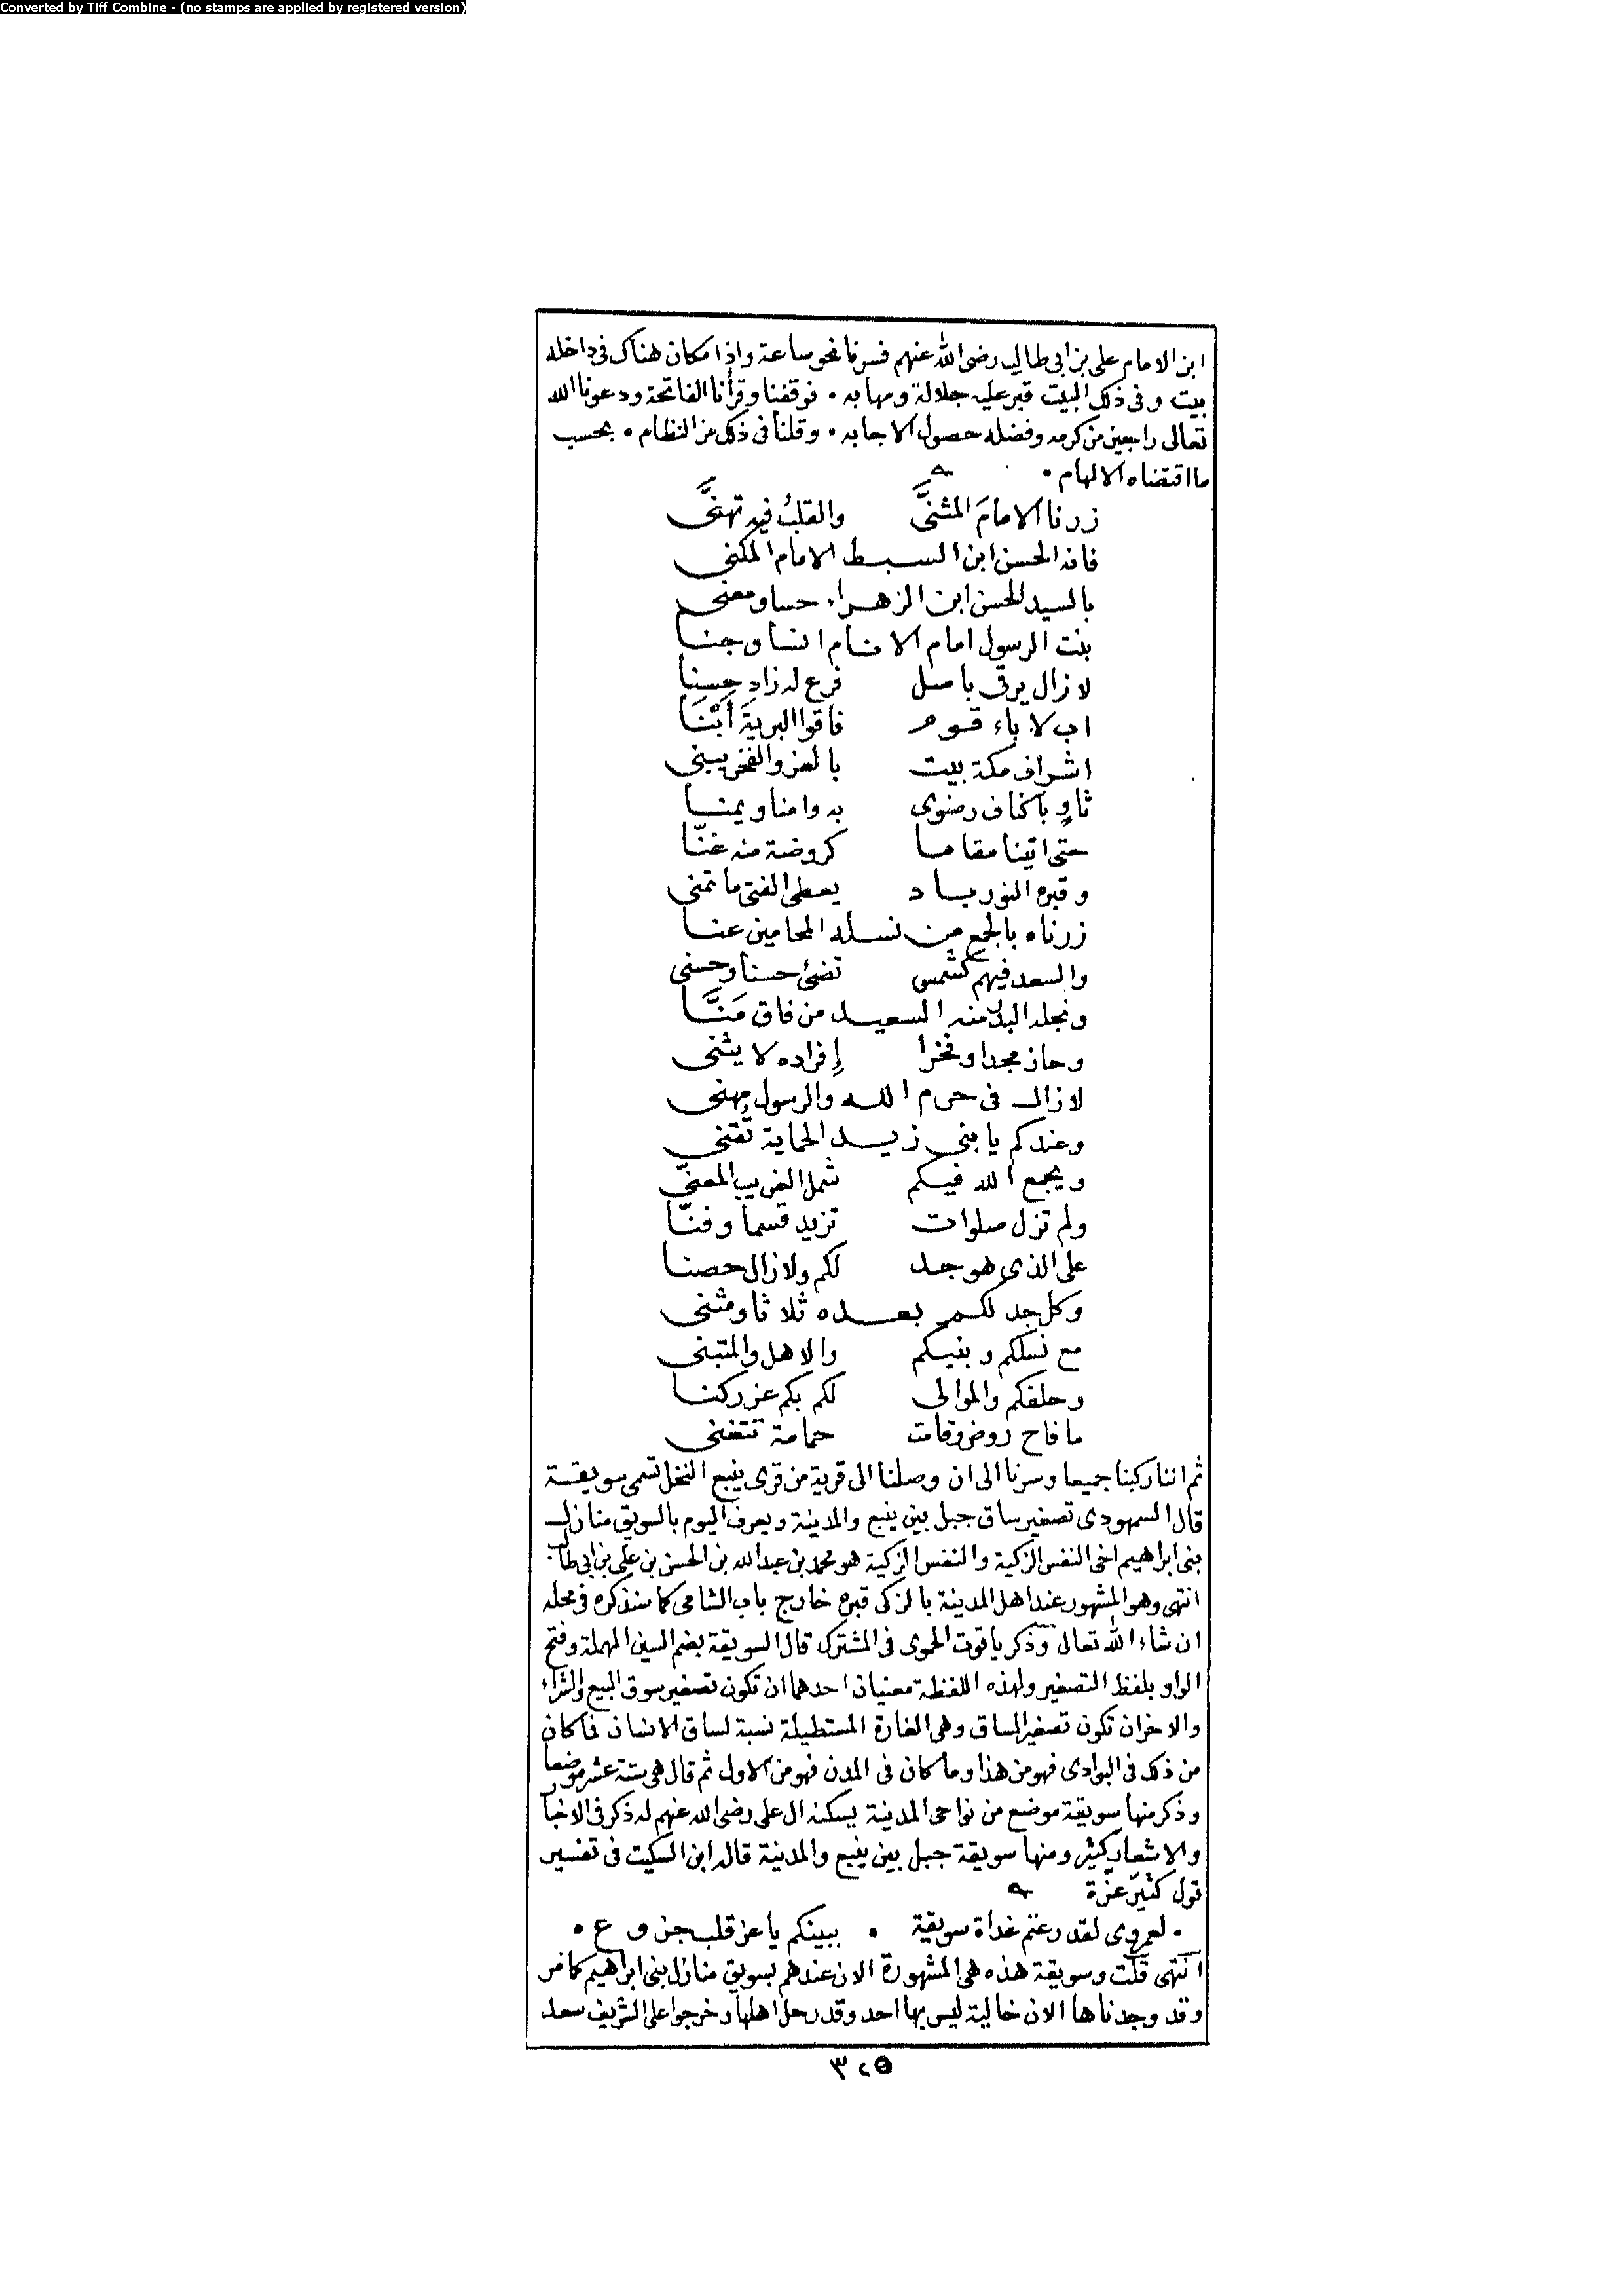 Converted by Tiff Combine - (no stamps are applied by registered version)
ابن الامام علي بن ابي طالب رضي الله عنهم فسرنا نحو ساعة واذا مكان هناك في داخله
بيت وفي ذلك البيت قبر عليه جلالة ومهابه . فوقفنا وقرأنا الفاتحة ودعونا الله
تعالى راجين من كرمه وفضله حصول الاجابه . وقلنا في ذلك من النظام . بحسب
ما اقتضاه الالهام .
زرنا الامامَ المثنَّى والقلبُ فيه تهنَّى
فانه الحسن ابن السبط الامام المكنى
بالسيد الحسن ابن الزهراء حسا ومعنى
بنت الرسول امام الانام انسا وجنا
لا زال يرقى باصل فرع له زاد حسنا
اب لاباء قوم فاقوا البرية أَبْنَا
اشراف مكة بيت بالعز والفخر يبنى
ثاوٍ باكناف رضوى به وامنا ويمنا
حتى اتينا مقاما كروضة منه غنّا
وقبره النور باد يعطى الفتى ما تمنى
زرناه بالجمع من نسله المحامين عنا
والسعد فيهم كشمس تضئ حسنا وحسنى
ونجله البدر منه السعيد من فاق مَنَّا
وحاز مجدا وفخرا إفراده لا يثنى
لا زال في حرم الله والرسول مهنى
وعندكم يا بنى زيد الحماية تُقنى
ويجمع الله فيكم شمل الغريب المعنّى
ولم تزل صلوات تزيد قسما وفنّا
على الذى هو جد لكم ولا زال حصنا
وكل جد لكم بعده ثلاثا ومثنى
مع نسلكم وبنيكم والاهل والمتبنى
وحلفكم والموالى لكم بكم عز ركنا
ما فاح روض وقامت حمامة تتغنى
ثم اننا ركبنا جميعا وسرنا الى ان وصلنا الى قرية من قرى ينبع النخل تسمى سويقة
قال السمهودى تصغير ساق جبل بين ينبع والمدينة ويعرف اليوم بالسويق منازل
بنى ابراهيم اخى النفس الزكية والنفس الزكية هو محمد بن عبدالله بن الحسن بن على بن ابى طالب
انتهى وهو المشهور عند اهل المدينة بالزكى قبره خارج باب الشامى كما سنذكره في محله
ان شاء الله تعالى وذكر ياقوت الحموى في المشترك قال السويقة بضم السين المهملة وفتح
الواو بلفظ التصغير ولهذه اللفظة معنيان احدهما ان تكون تصغير سوق البيع والشراء
والاخر ان تكون تصغير الساق وهى الغارة المستطيلة نسبة لساق الانسان فما كان
من ذلك في البوادى فهو من هذا وما كان في المدن فهو من الاول ثم قال هى ستة عشر موضعا
وذكر منها سويقة موضع من نواحى المدينة يسكنه ال على رضى الله عنهم له ذكر في الاخبا
والاشعار كثير ومنها سويقة جبل بين ينبع والمدينة قاله ابن السكيت في تفسير
قول كثير عزة
. لعمرى لقد رعتم غداة سويقة . ببينكم يا عز قلب جزوع .
انتهى قلت وسويقة هذه هى المشهورة الان عندهم بسويق منازل بنى ابراهيم كما مر
وقد وجدناها الان خالية ليس بها احد وقد رحل اهلها وخرجوا على الشريف سعد
٣٢٥